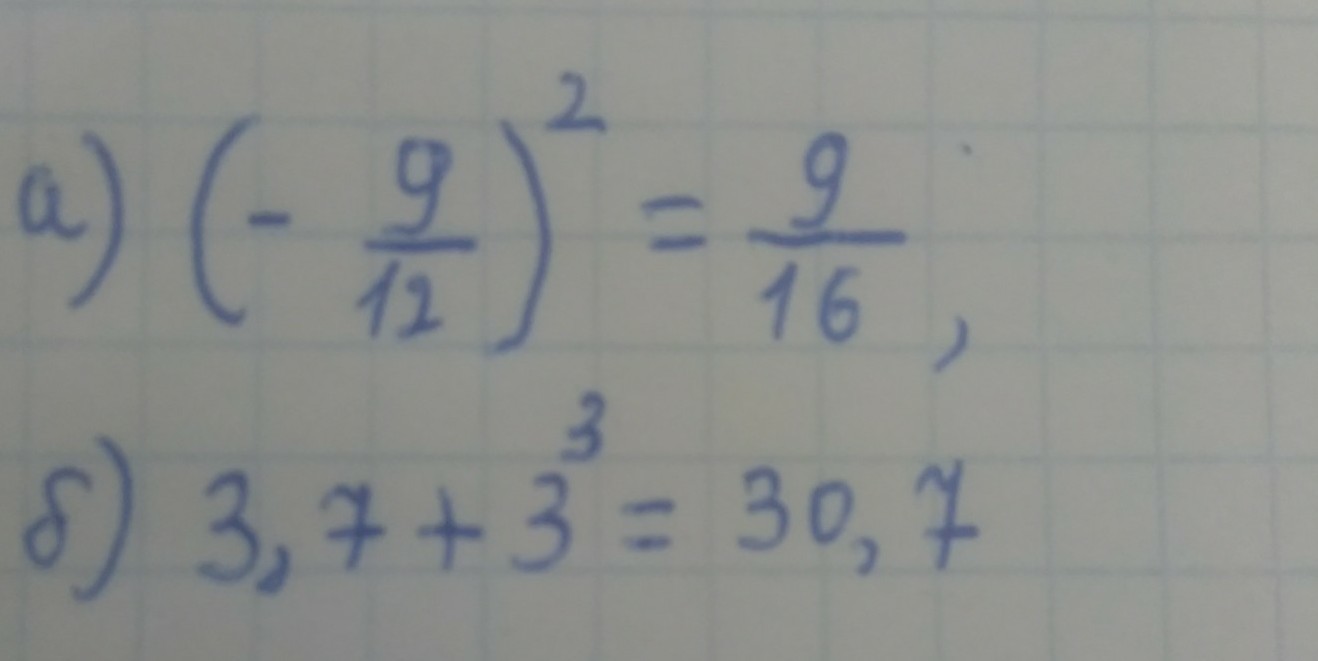 а) (- 9/12)² = 9/16,
б) 3,7 + 3³ = 30,7